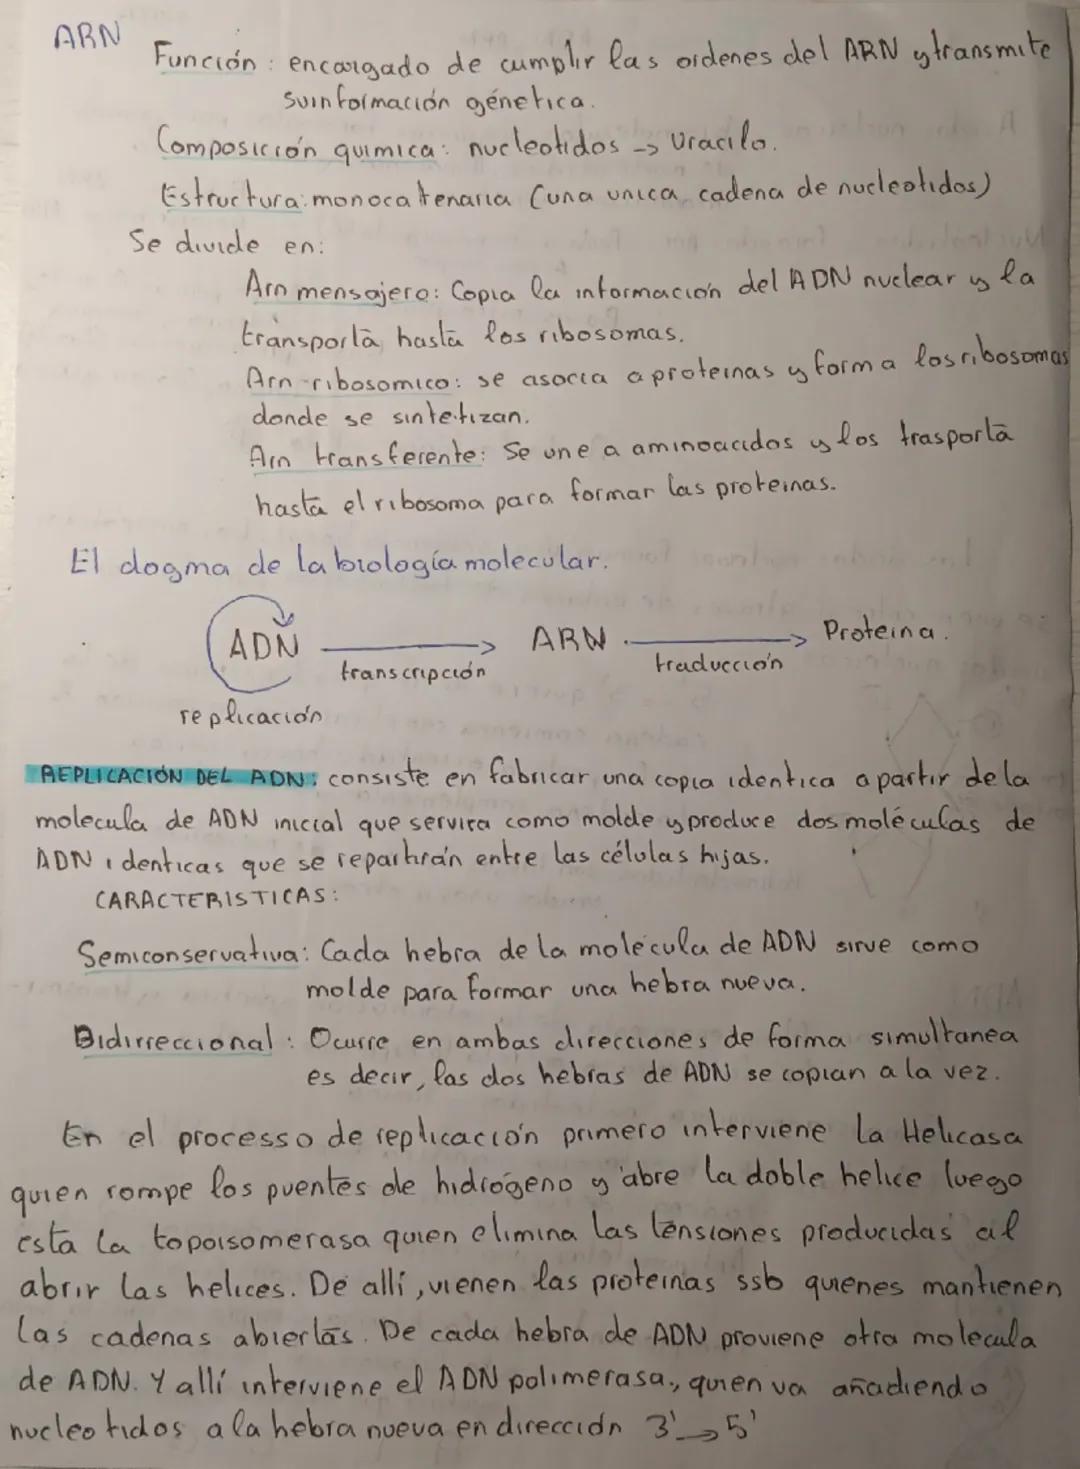 ARN
Función: encargado de cumplir las ordenes del ARN y transmite
su información génetica.
Composición quimica: nucleotidos -> Uracilo.
Estructura: monocatenaria (una unica cadena de nucleotidos)
Se divide en:
Arn mensajero: Copia la información del ADN nuclear y la
transporta hasta los ribosomas.
Arn ribosomico: se asocia a proteinas y forma los ribosomas
donde se sintetizan.
Arn transferente: Se une a aminoacidos y los trasporta
hasta el ribosoma para formar las proteinas.
El dogma de la biología molecular.
ADN → ARN → Proteina.
transcripción traducción
replicación
REPLICACIÓN DEL ADN: consiste en fabricar una copia identica a partir de la
molecula de ADN inicial que servira como molde y produce dos moléculas de
ADN identicas que se repartirán entre las células hijas.
CARACTERISTICAS:
Semiconservativa: Cada hebra de la molécula de ADN sirve como
molde para formar una hebra nueva.
Bidirreccional: Ocurre en ambas direcciones de forma simultanea
es decir, las dos hebras de ADN se copian a la vez.
En el processo de replicación primero interviene la Helicasa
quien rompe los puentes de hidrógeno y abre la doble helice luego
esta la topoisomerasa quien elimina las tensiones producidas al
abrir las helices. De allí, vienen las proteinas ssb quienes mantienen
las cadenas abiertas. De cada hebra de ADN proviene otra molecula
de ADN. Y allí interviene el ADN polimerasa, quien va añadiendo
nucleotidos a la hebra nueva en dirección 3'→5'